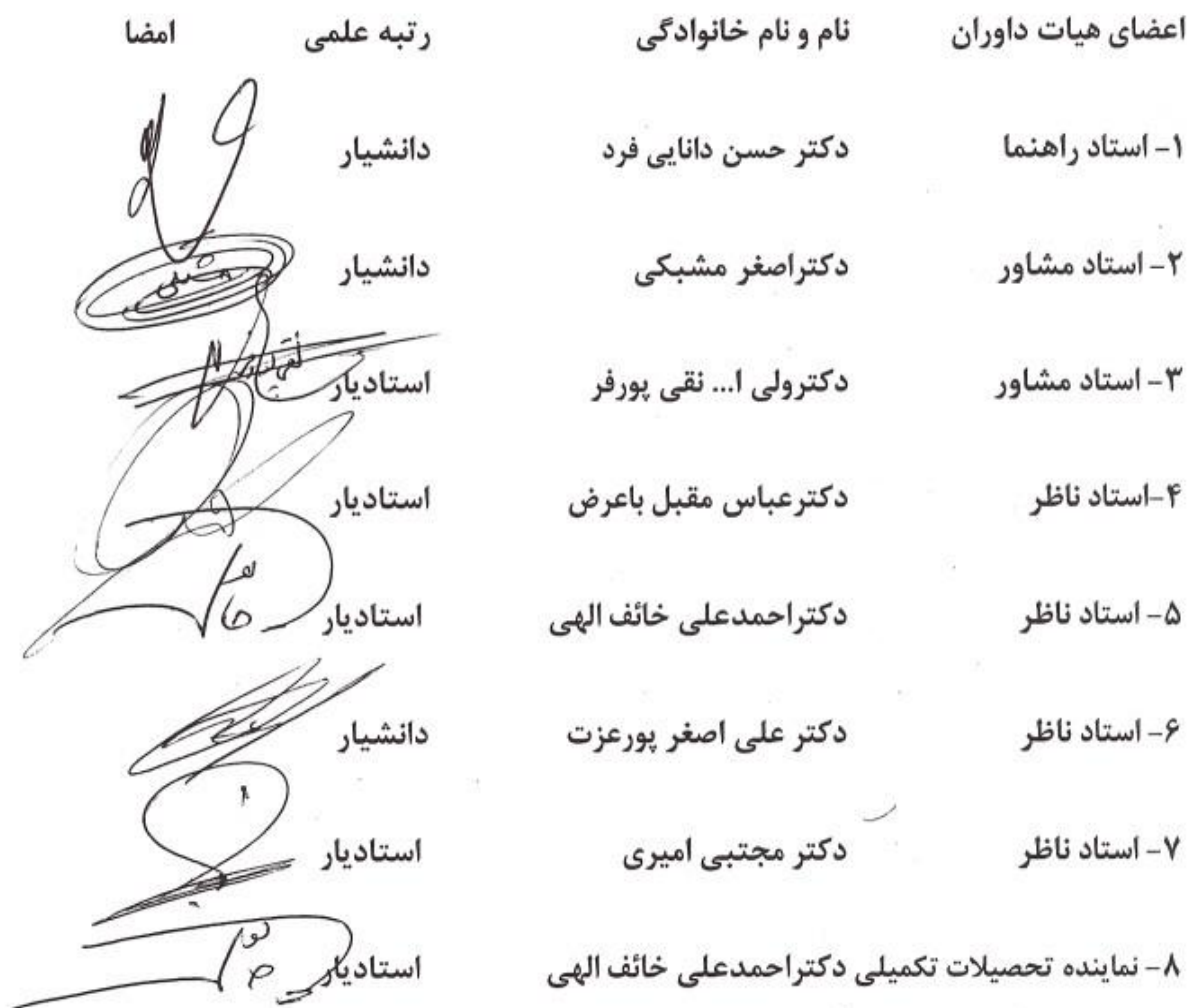 اعضای هیات داوران نام و نام خانوادگی رتبه علمی امضا
۱- استاد راهنما دکتر حسن دانایی فرد دانشیار
۲- استاد مشاور دکتراصغر مشبکی دانشیار
۳- استاد مشاور دکترولی ا... نقی پورفر استادیار
۴-استاد ناظر دکترعباس مقبل باعرض استادیار
۵- استاد ناظر دکتراحمدعلی خائف الهی استادیار
۶- استاد ناظر دکتر علی اصغر پورعزت دانشیار
۷- استاد ناظر دکتر مجتبی امیری استادیار
۸- نماینده تحصیلات تکمیلی دکتراحمدعلی خائف الهی استادیار